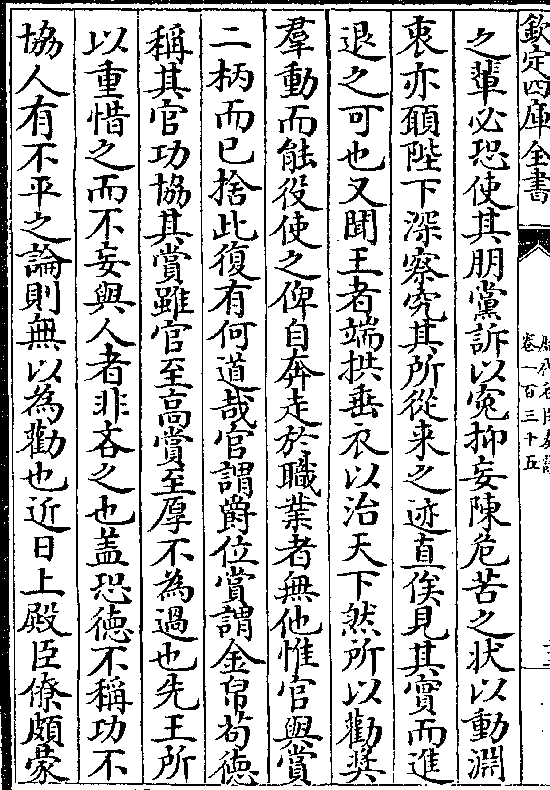 欽定四庫全書
卷一百三十五
之輩必恐使其朋黨訴以寃抑妄陳危苦之狀以動淵
衷亦願陛下深察究其所從来之迹直俟見其實而進
退之可也又聞王者端拱垂衣以治天下然所以勸奨
羣動而能役使之俾自奔走於職業者無他惟官與賞
二柄而已捨此復有何道哉官謂爵位賞謂金帛茍徳
稱其官功協其賞雖官至高賞至厚不為過也先王所
以重惜之而不妄與人者非吝之也盖恐徳不稱功不
協人有不平之論則無以為勸也近日上殿臣僚頗蒙